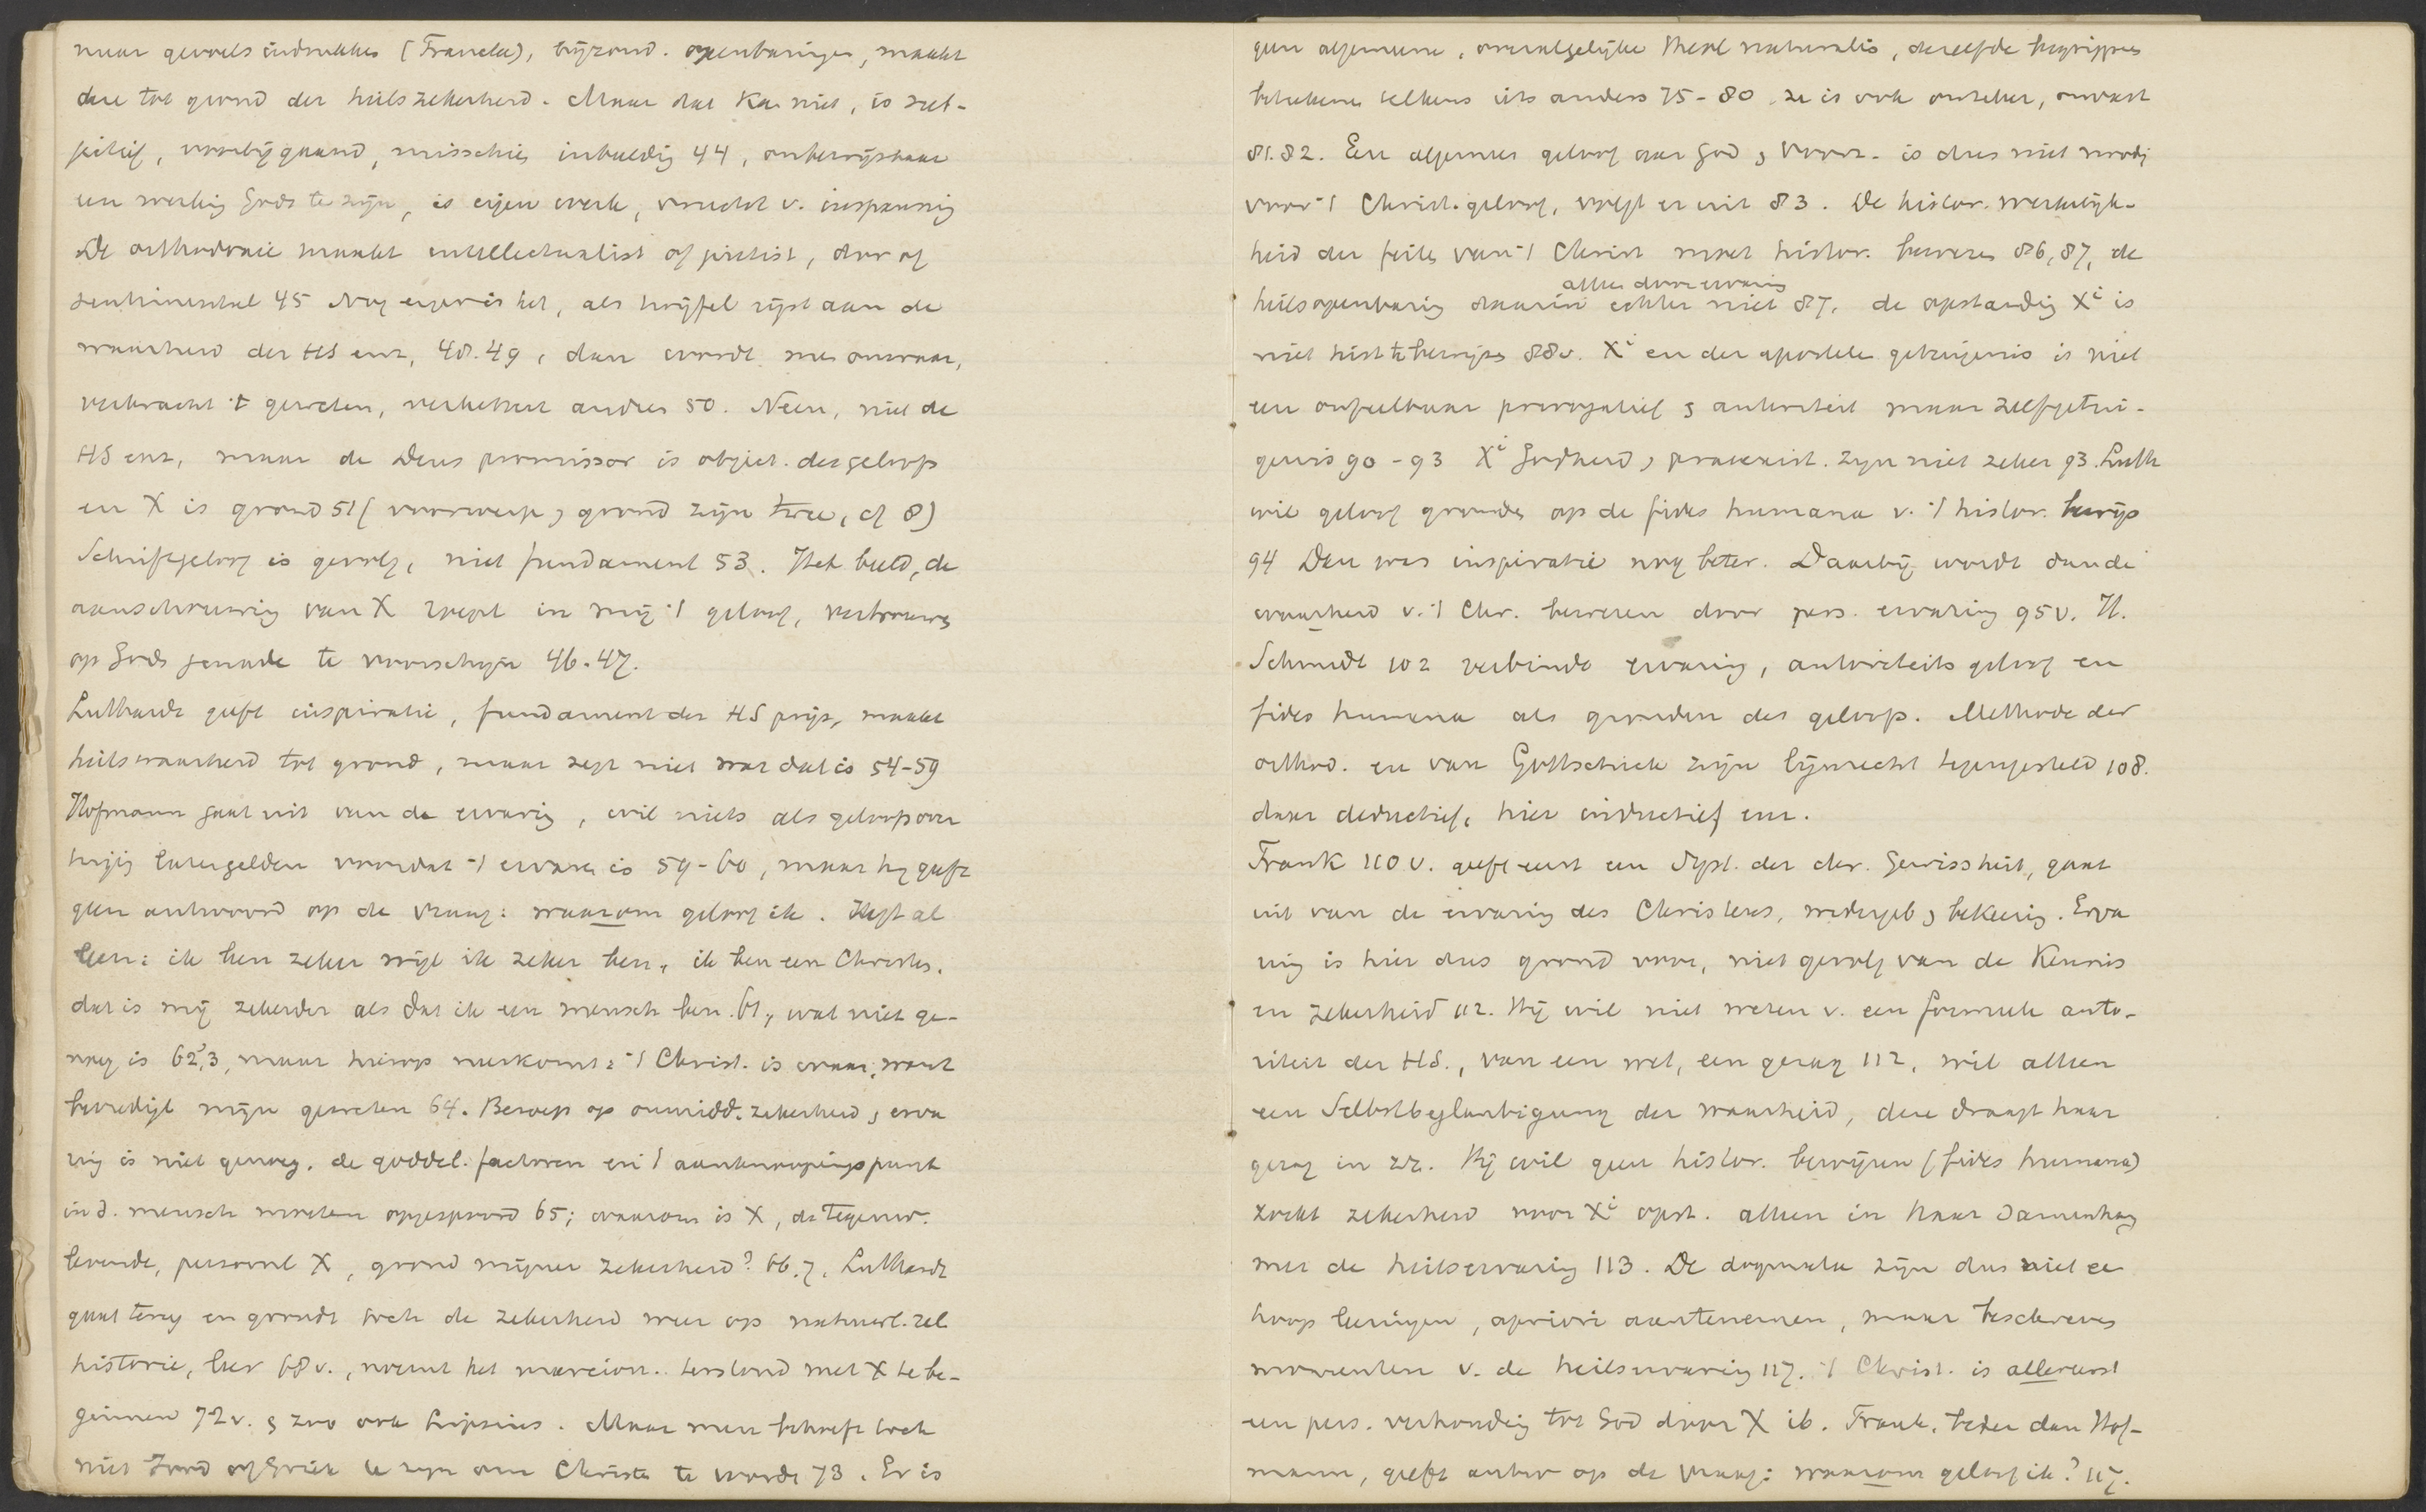 naar gevoels indrukken (Francke), bijzond. openbaringen, maakt
deze tot grond der heilszekerheid. Maar dat kan niet, is sub-
jectief, voorbijgaand, misschien inbeelding 44, onbewijsbaar
een werking Gods te zijn, is eigen werk, vrucht v. inspanning
De orthodoxie maakt intellectualist of piëtist, dor of
sentimenteel 45 Nog erger is het, als twijfel rijst aan de
waarheid der HS enz, 48.49, dan wordt men onwaar,
verkracht 't geweten, verkettert andren 50. Neen, niet de
HS enz, maar de Deus promissor is object des geloofs
en X is grond 51 (voorwerp & grond zijn twee, cf 8)
Schriftgeloof is gevolg, niet fundament 53. Het beeld, de
aanschouwing van X roept in mij 't geloof, vertrouwen
op Gods genade te voorschijn 46.47.
Luthardt geeft inspiratie, fundament der HS prijs, maakt
heilswaarheid tot grond, maar zegt niet wat dat is 54-59
Hofmann gaat uit van de ervaring, wil niets als geloofsover
tuiging laten gelden voordat 't ervaren is 59-60, maar hij geeft
geen antwoord op de vraag: waarom geloof ik. Zegt al
leen: ik ben zeker wijl ik zeker ben, ik ben een Christen,
dat is mij zekerder als dat ik een mensch ben 61, wat niet ge-
noeg is 62,3, maar hierop neerkomt: 't Christ. is waar, want
bevredigt mijn geweten 64. Beroep op onmidd. zekerheid & erva
ring is niet genoeg, de goddel. factoren en 't aanknoopingspunt
in d. mensch moeten opgespoord 65; waarom is X, de tegenw.
levende, persoonl X, grond mijner zekerheid? 66.7. Luthardt
gaat terug en grondt toch de zekerheid weer op natuurl. rel.
historie, leer 68v., noemt het marcion. terstond met X te be-
ginnen 72v. & zoo ook Lipsius. Maar men behoeft toch
niet Jood of Griek te zijn om Christen te worden 73. Er is
geen algemeene, overalgelijke theol naturalis, dezelfde begrippen
beteekenen telkens iets anders 75-80 ze is ook onzeker, onvast
81.82. Een algemeen geloof aan God & Voorz. is dus niet noodig
voor 't Christ. geloof, volgt er uit 83. De histor. werkelijk-
heid der feiten van 't Christ moet histor. bewezen 86,87, de
alleen door ervaring
heilsopenbaring daarin echter niet 87. de opstanding Xi is
niet hist te bewijzen 88v. Xi en der apostelen getuigenis is niet
een onfeilbaar prerogatief & autoriteit maar zelfgetui-
genis 90-93 Xi Godheid & praeexist. zijn niet zeker 93. Luth
wil geloof gronden op de fides humana v. 't histor. bewijs
94 Dan was inspiratie nog beter. Daarbij wordt dan de
waarheid v. 't Chr. bewezen door pers. ervaring 95v. H.
Schmidt 102 verbindt ervaring, autoriteitsgeloof en
fides humana als gronden des geloofs. Methode der
orthod. en van Gottschick zijn lijnrecht tegengesteld 108.
daar deductief, hier inductief enz.
Frank 110v. geeft eerst een Syst. der chr. Gewissheit, gaat
uit van de ervaring des Christens, wedergeb & bekeering. Erva
ring is hier dus grond voor, niet gevolg van de Kennis
en zekerheid 112. Hij wil niet weten v. een formeele auto-
riteit der HS., van een wet, een gezag 112, wil alleen
een Selbstbeglaubigung der waarheid, deze draagt haar
gezag in zz. Hij wil geen histor. bewijzen (fides humana)
zoekt zekerheid voor Xi opst. alleen in haar samenhang
met de heilservaring 113. De dogmata zijn dus niet een
hoop leeringen, apriori aantenemen, maar beschreven
momenten v. de heilservaring 117. 't Christ. is allereerst
een pers. verhouding tot God door X ib. Frank, beter dan Hof-
mann, geeft antw op de vraag: waarom geloof ik? 117.